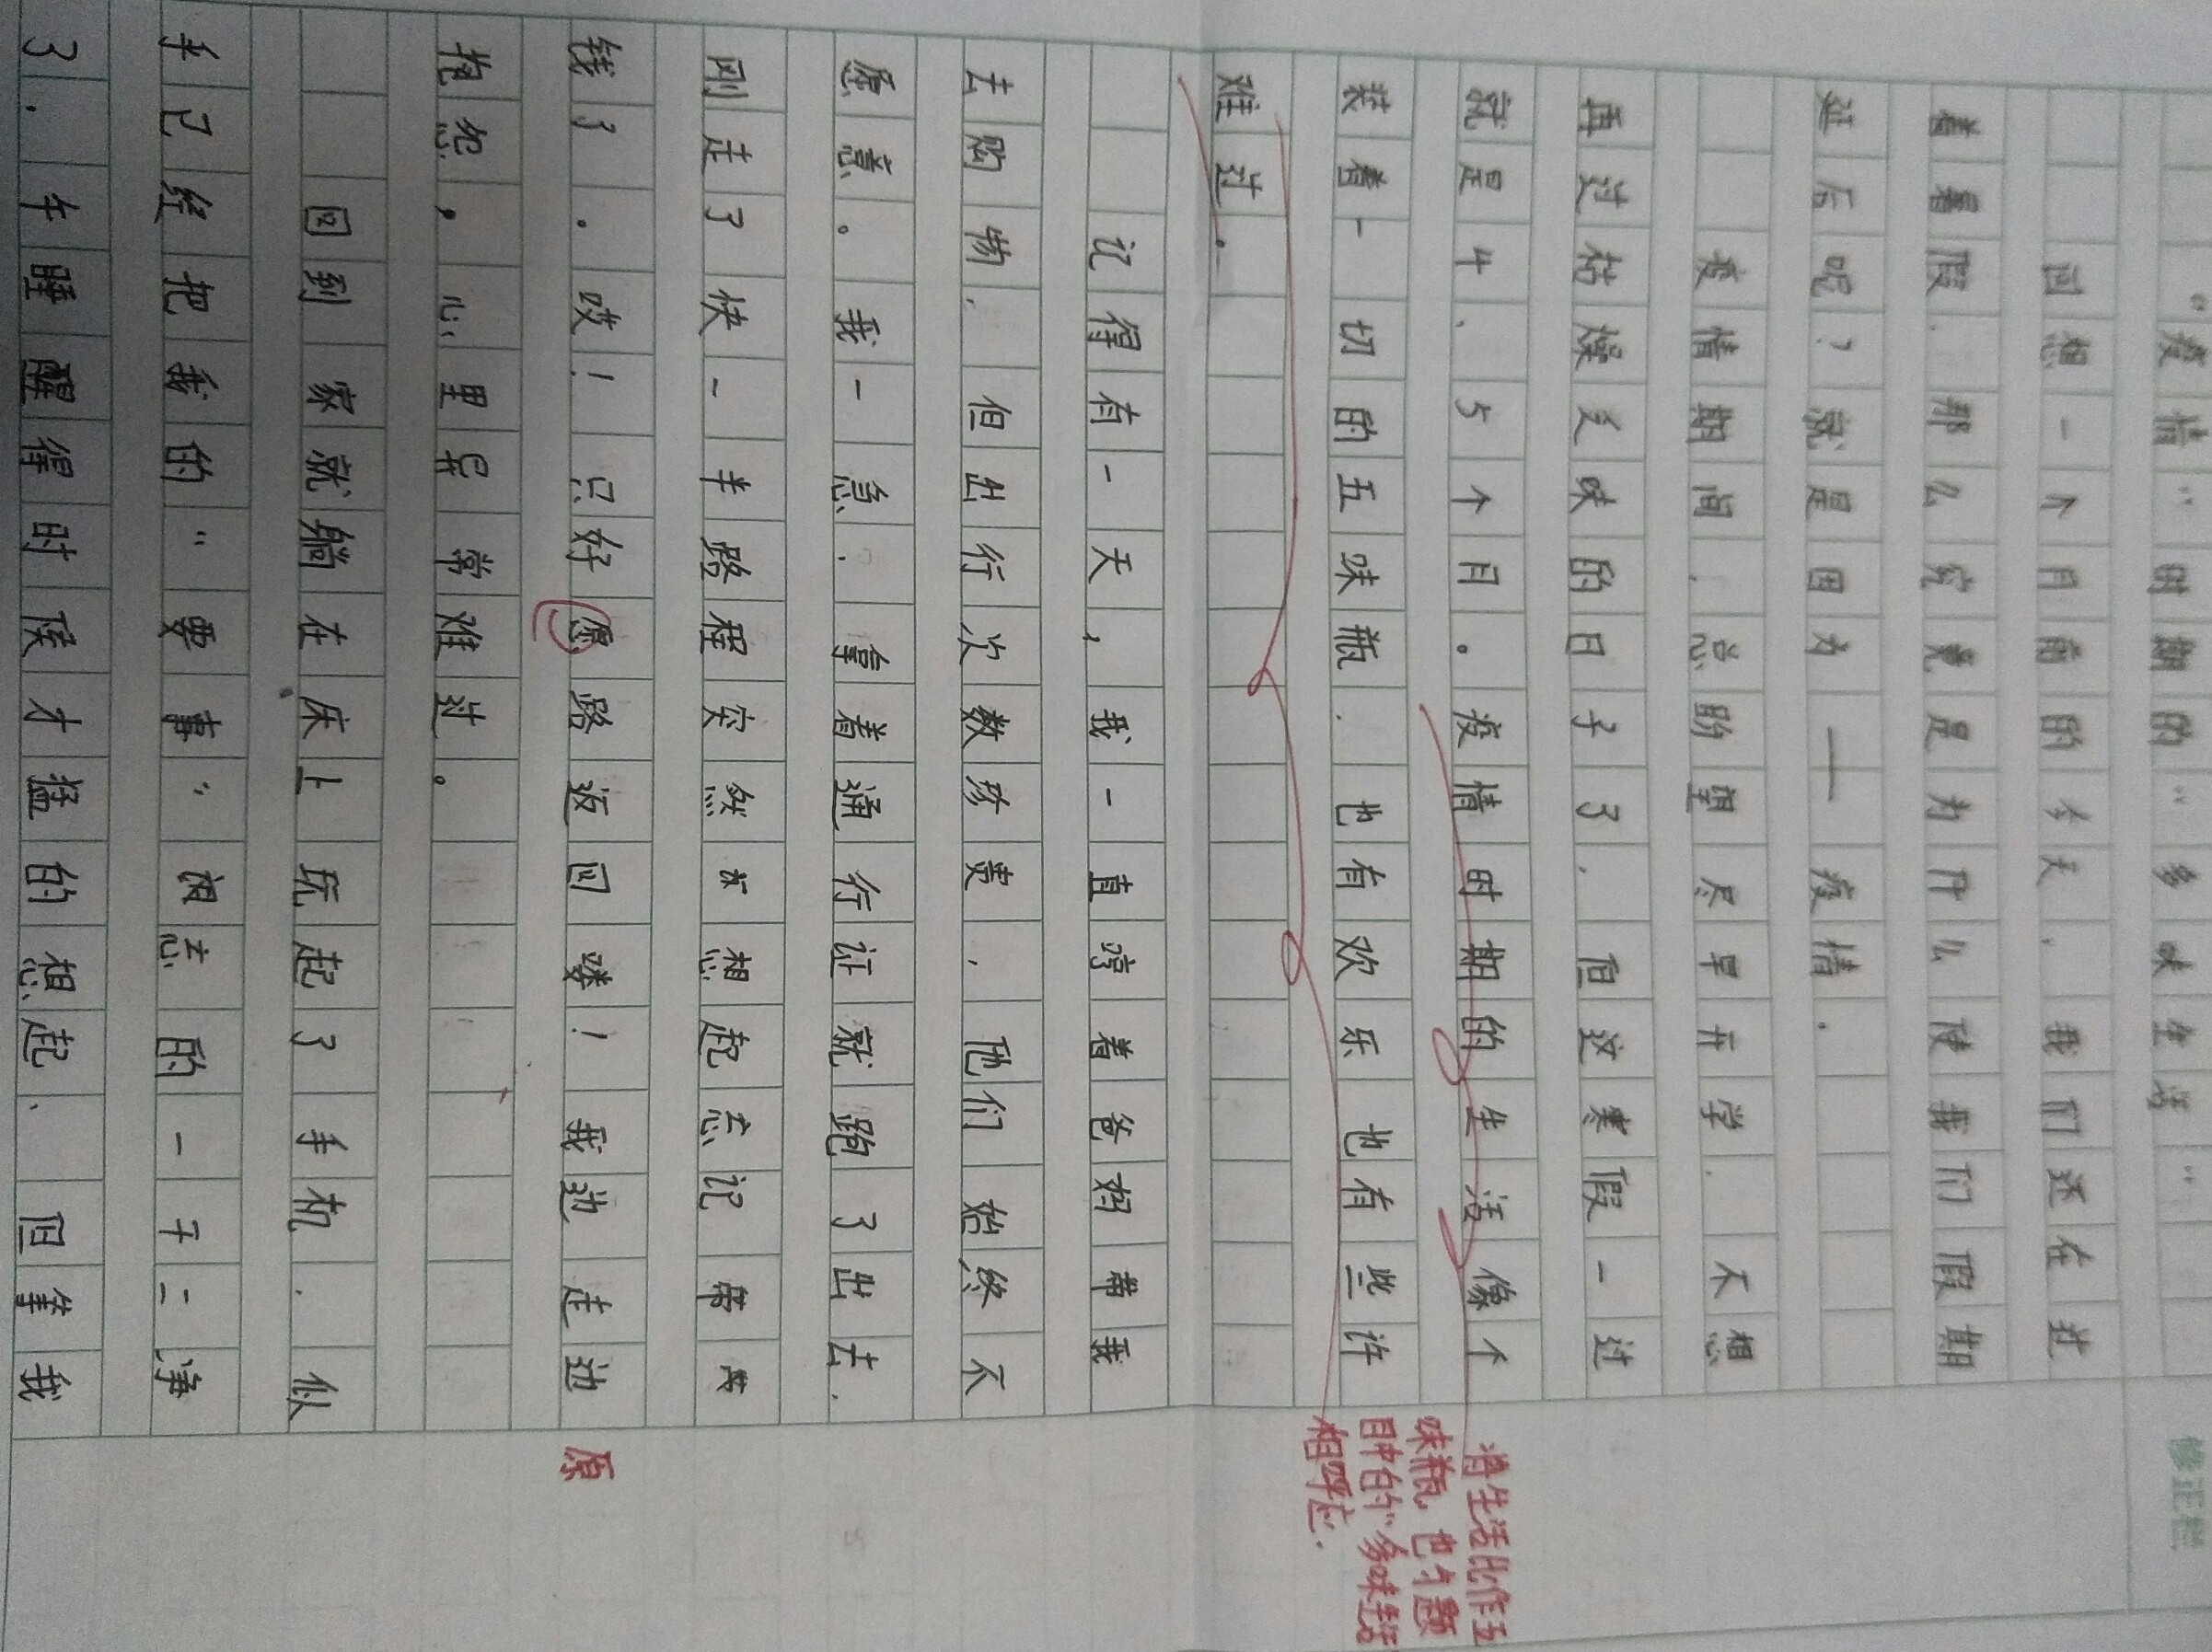 修正栏
“疫情”时期的“多味生活”
回想一个月前的今天，我们还在过
着暑假．那么究竟是为什么使我们假期
延后呢？就是因为——疫情．
疫情期间．总盼望尽早开学．不想
再过枯燥乏味的日子了．但这寒假一过
就是4、5个月。疫情时期的生活像个
装着一切的五味瓶．也有欢乐也有些许
难过．
将生活比作五
味瓶，也与题
目中的“多味生活”
相呼应．
记得有一天，我一直哼着爸妈带我
去购物．但出行次数珍贵．他们始终不
愿意。我一急．拿着通行证就跑了出去．
刚走了快一半路程突然想起忘记带
钱了．哎！只好愿路返回喽！我边走边
原
抱怨，心里异常难过。
回到家就躺在床上玩起了手机．似
乎已经把我的“要事”忘的一干二净
了．午睡醒得时候才猛的想起．但等我